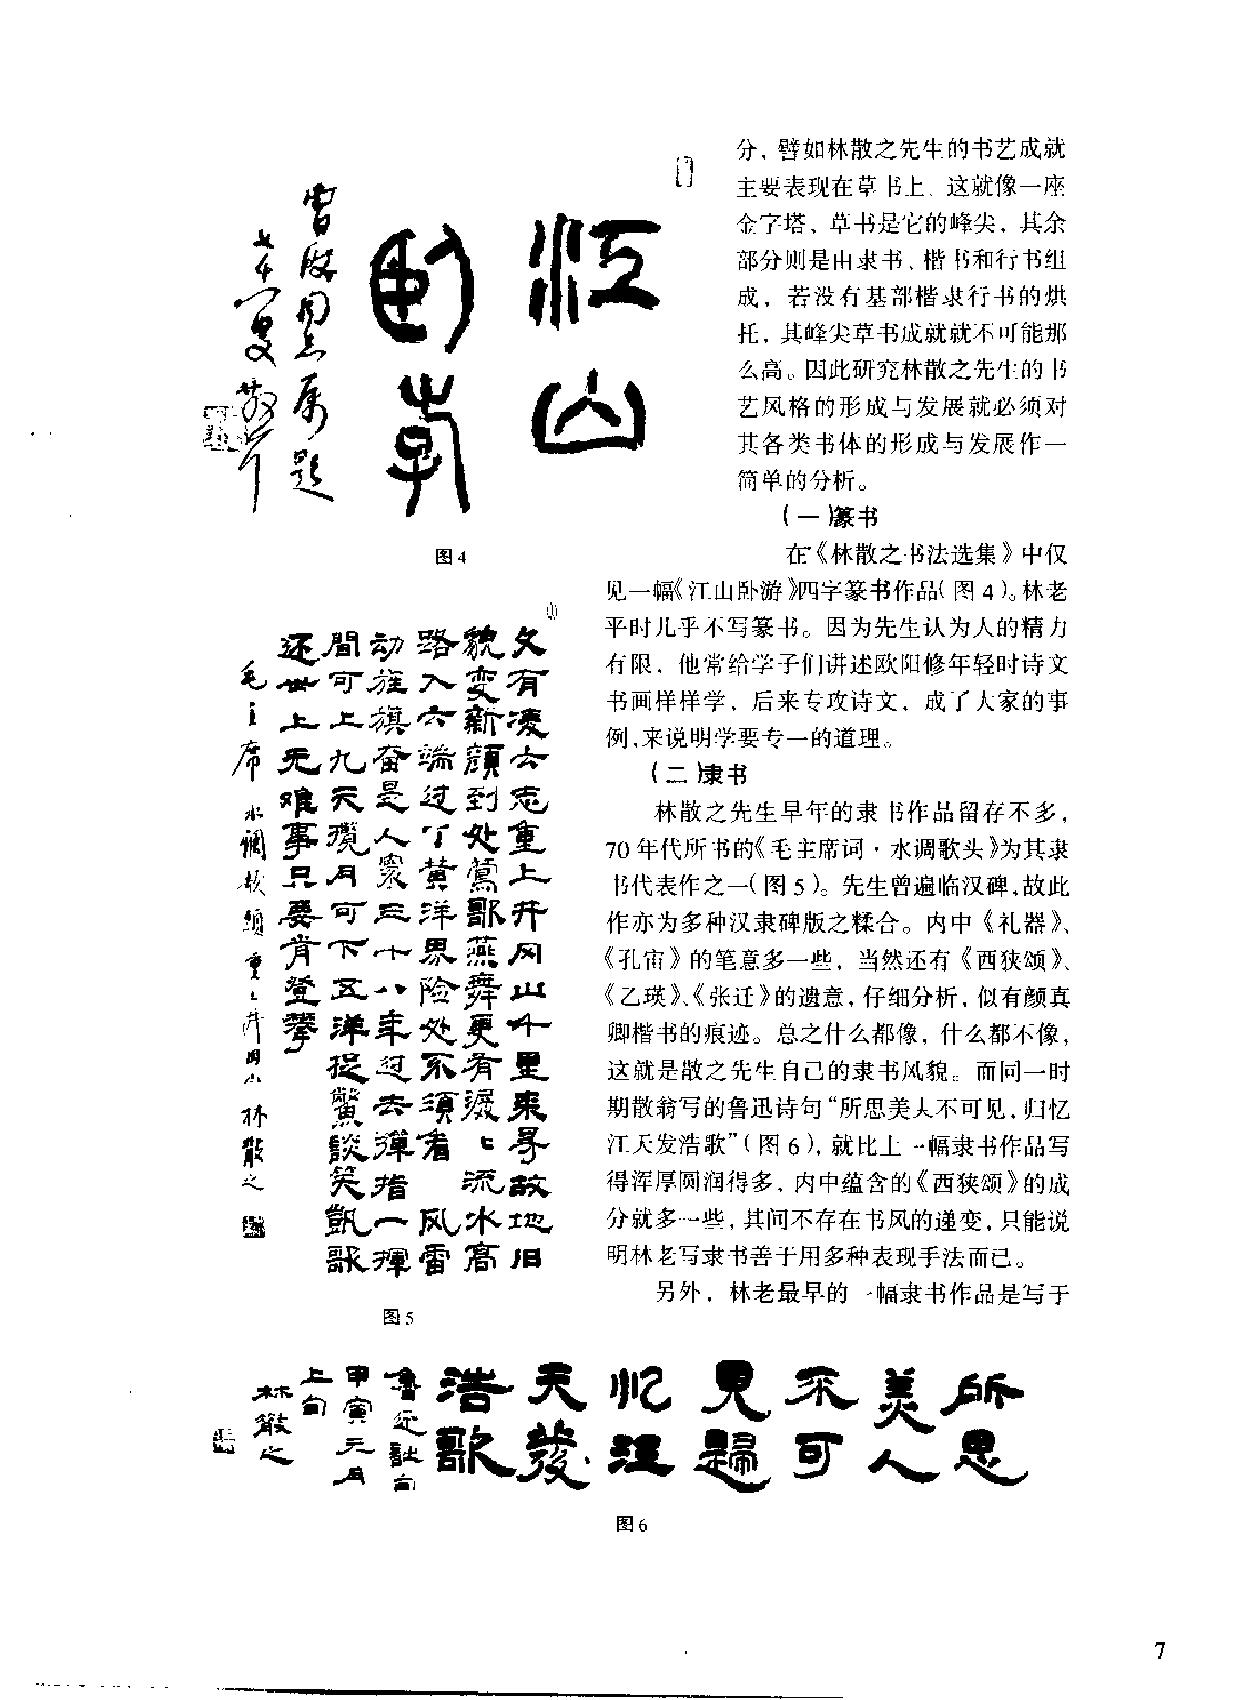 分，譬如林散之先生的书艺成就
主要表现在草书上，这就像一座
金字塔，草书是它的峰尖，其余
部分则是由隶书、楷书和行书组
成，若没有基部楷隶行书的烘
托，其峰尖草书成就就不可能那
么高。因此研究林散之先生的书
艺风格的形成与发展就必须对
其各类书体的形成与发展作一
简单的分析。
（一）篆书
在《林散之书法选集》中仅
见一幅《江山卧游》四字篆书作品（图4）。林老
平时几乎不写篆书。因为先生认为人的精力
有限，他常给学子们讲述欧阳修年轻时诗文
书画样样学，后来专攻诗文，成了大家的事
例，来说明学要专一的道理。
（二）隶书
林散之先生早年的隶书作品留存不多，
70年代所书的《毛主席词·水调歌头》为其隶
书代表作之一（图5）。先生曾遍临汉碑，故此
作亦为多种汉隶碑版之糅合。内中《礼器》、
《孔宙》的笔意多一些，当然还有《西狭颂》、
《乙瑛》、《张迁》的遗意，仔细分析，似有颜真
卿楷书的痕迹。总之什么都像，什么都不像，
这就是散之先生自己的隶书风貌。而同一时
期散翁写的鲁迅诗句“所思美人不可见，归忆
江天发浩歌”（图6），就比上一幅隶书作品写
得浑厚圆润得多，内中蕴含的《西狭颂》的成
分就多一些，其间不存在书风的递变，只能说
明林老写隶书善于用多种表现手法而已。
另外，林老最早的一幅隶书作品是写于
江山
卧游
同志属题
图4
久有凌云志重上井冈山千里来寻故地旧
貌变新颜到处莺歌燕舞更有潺〻流水高
路入云端过了黄洋界险处不须看 风雷
动旌旗奋是人寰三十八年过去弹指一挥
間可上九天揽月可下五洋捉鱉談笑凱歌
还世上无难事只要肯登攀
毛主席水调歌头重上井冈山林散之
图5
所思
美人
不可
見歸
忆江
天發
浩歌
魯迅詩句
甲寅元月
上旬
林散之
图6
7